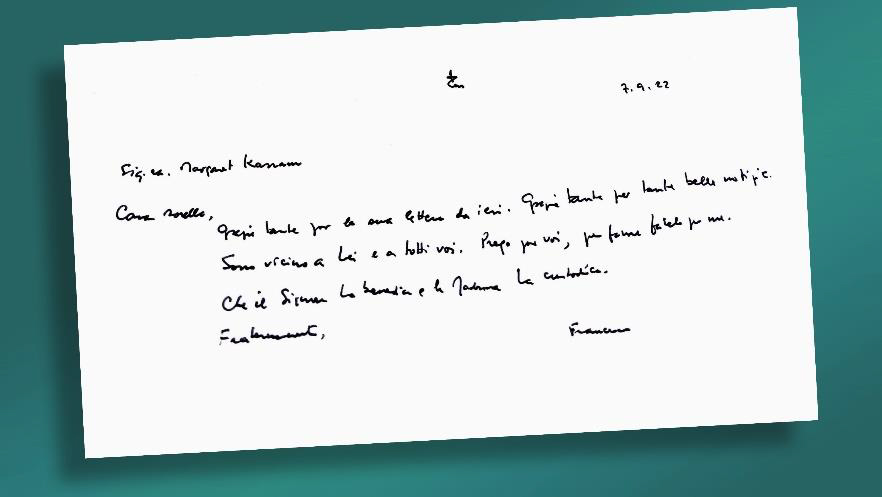 7.9.22
Sig.ra. Margaret Karram
Cara sorella,
grazie tante per la sua lettera di ieri. Grazie tante per tante belle notizie.
Sono vicino a Lei e a tutti voi. Prego per voi, per favore fatelo per me.
Che il Signore La benedica e la Madonna La custodisca.
Fraternamente,
Francesco